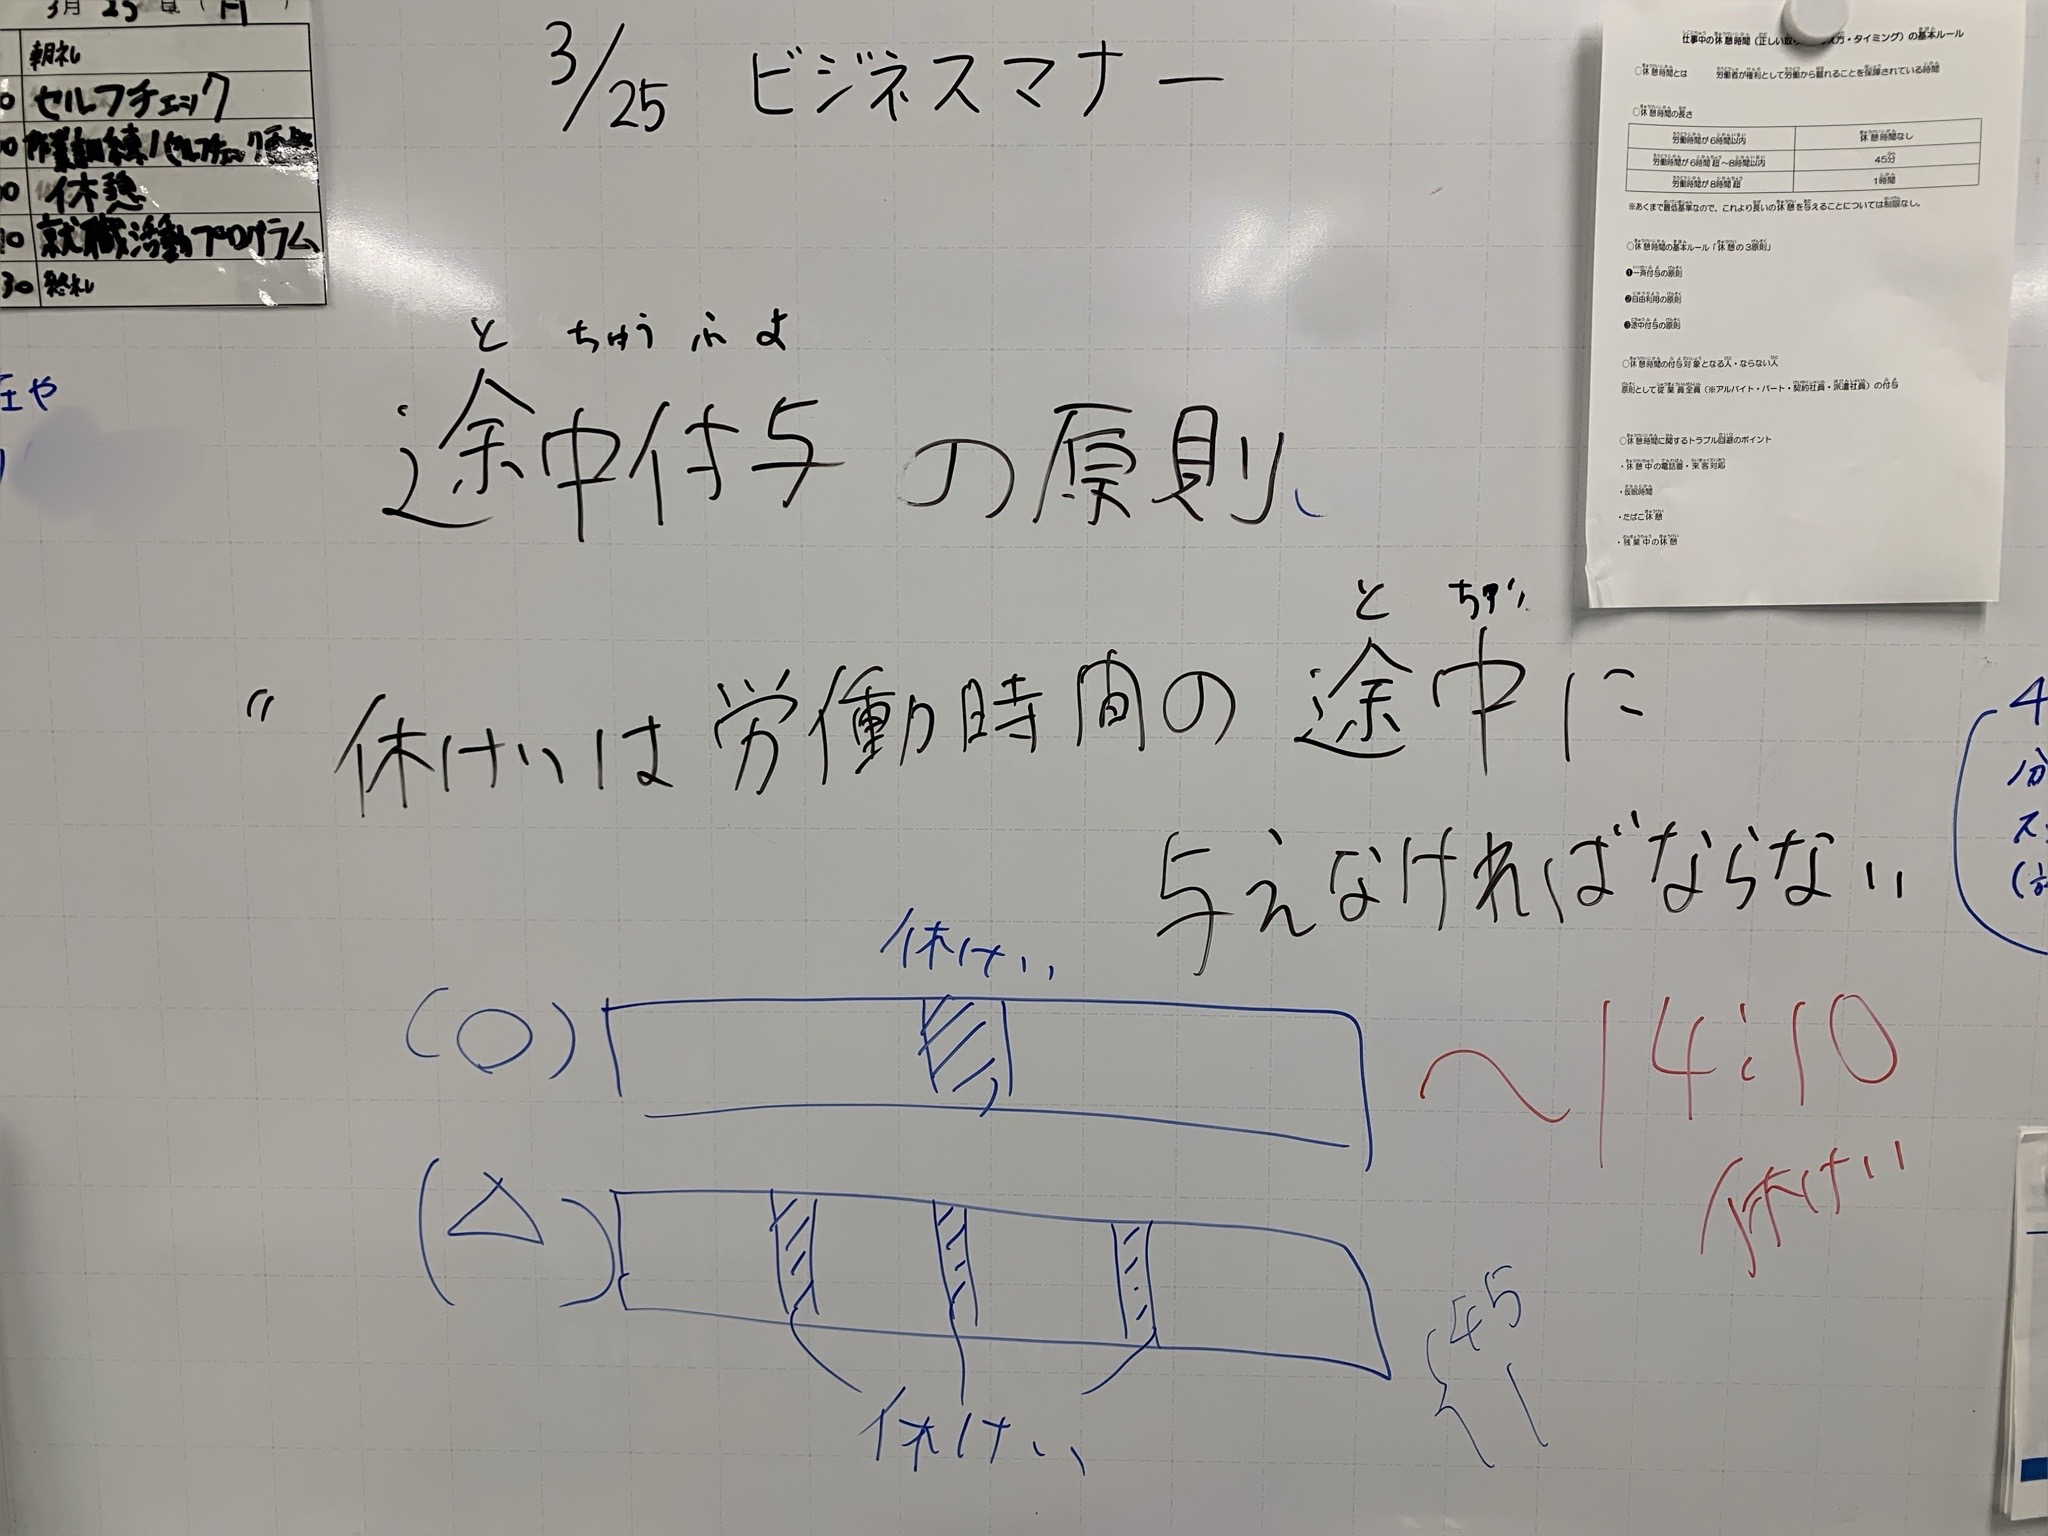 3月25日(月)
朝礼
セルフチェック
休憩
就職活動プログラム
30 終礼
3/25 ビジネスマナー
と ちゅう ふ よ
途中付与の原則
と ちゅう
"休けいは労働時間の途中に
与えなければならない
休けい
(○)
~14:10
休けい
(△)
45
休けい
在や
4
分
仕事中の休憩時間(正しい取 方・タイミング)の基本ルール
○休憩時間とは 労働者が権利として労働から離れることを保障されている時間
○休憩時間の長さ
労働時間が6時間以内 休憩時間なし
労働時間が6時間超~8時間以内 45分
労働時間が8時間超 1時間
※あくまで最低基準なので、これより長いの休憩を与えることについては制限なし。
○休憩時間の基本ルール「休憩の3原則」
❶一斉付与の原則
❷自由利用の原則
❸途中付与の原則
○休憩時間の付与対象となる人・ならない人
原則として従業員全員(※アルバイト・パート・契約社員・派遣社員)の付与
○休憩時間に関するトラブル回避のポイント
・休憩中の電話番・来客対応
・仮眠時間
・たばこ休憩
・残業中の休憩